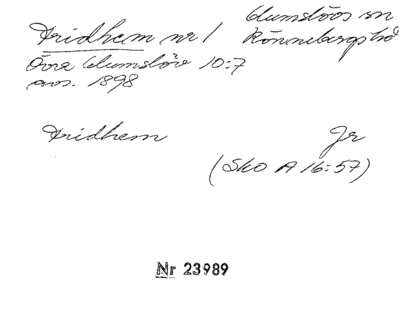 Fridhem nr 1
Glumslövs sn
Rönnebergs hd
Övre Glumslöv 10:7
avs. 1898
Fridhem Jr
(Sko A 16:57)
Nr 23989